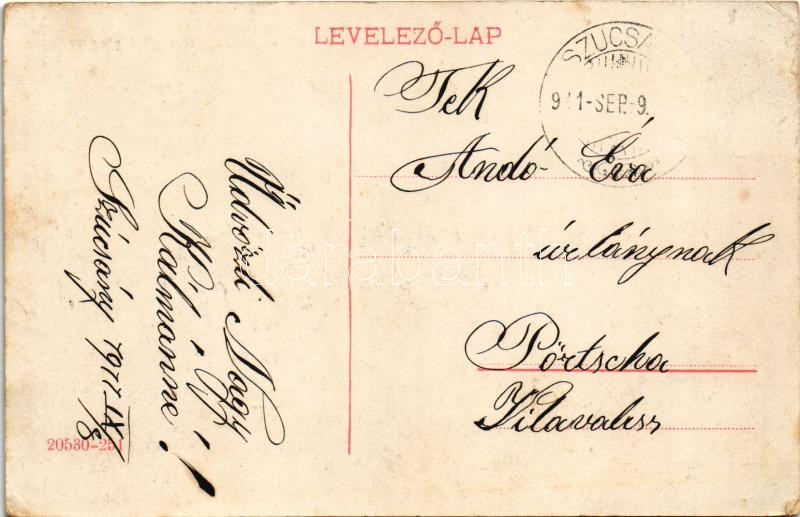 LEVELEZŐ-LAP
SZUCSÁ
911-SEP.-9.
Tek
Andó Éva
úrlánynak
Pörtscha
Vilavalisz
Üdvözli Nagy
Kálmánné!
Szúcsány 1911 IX/8
20530-251
Darabanth